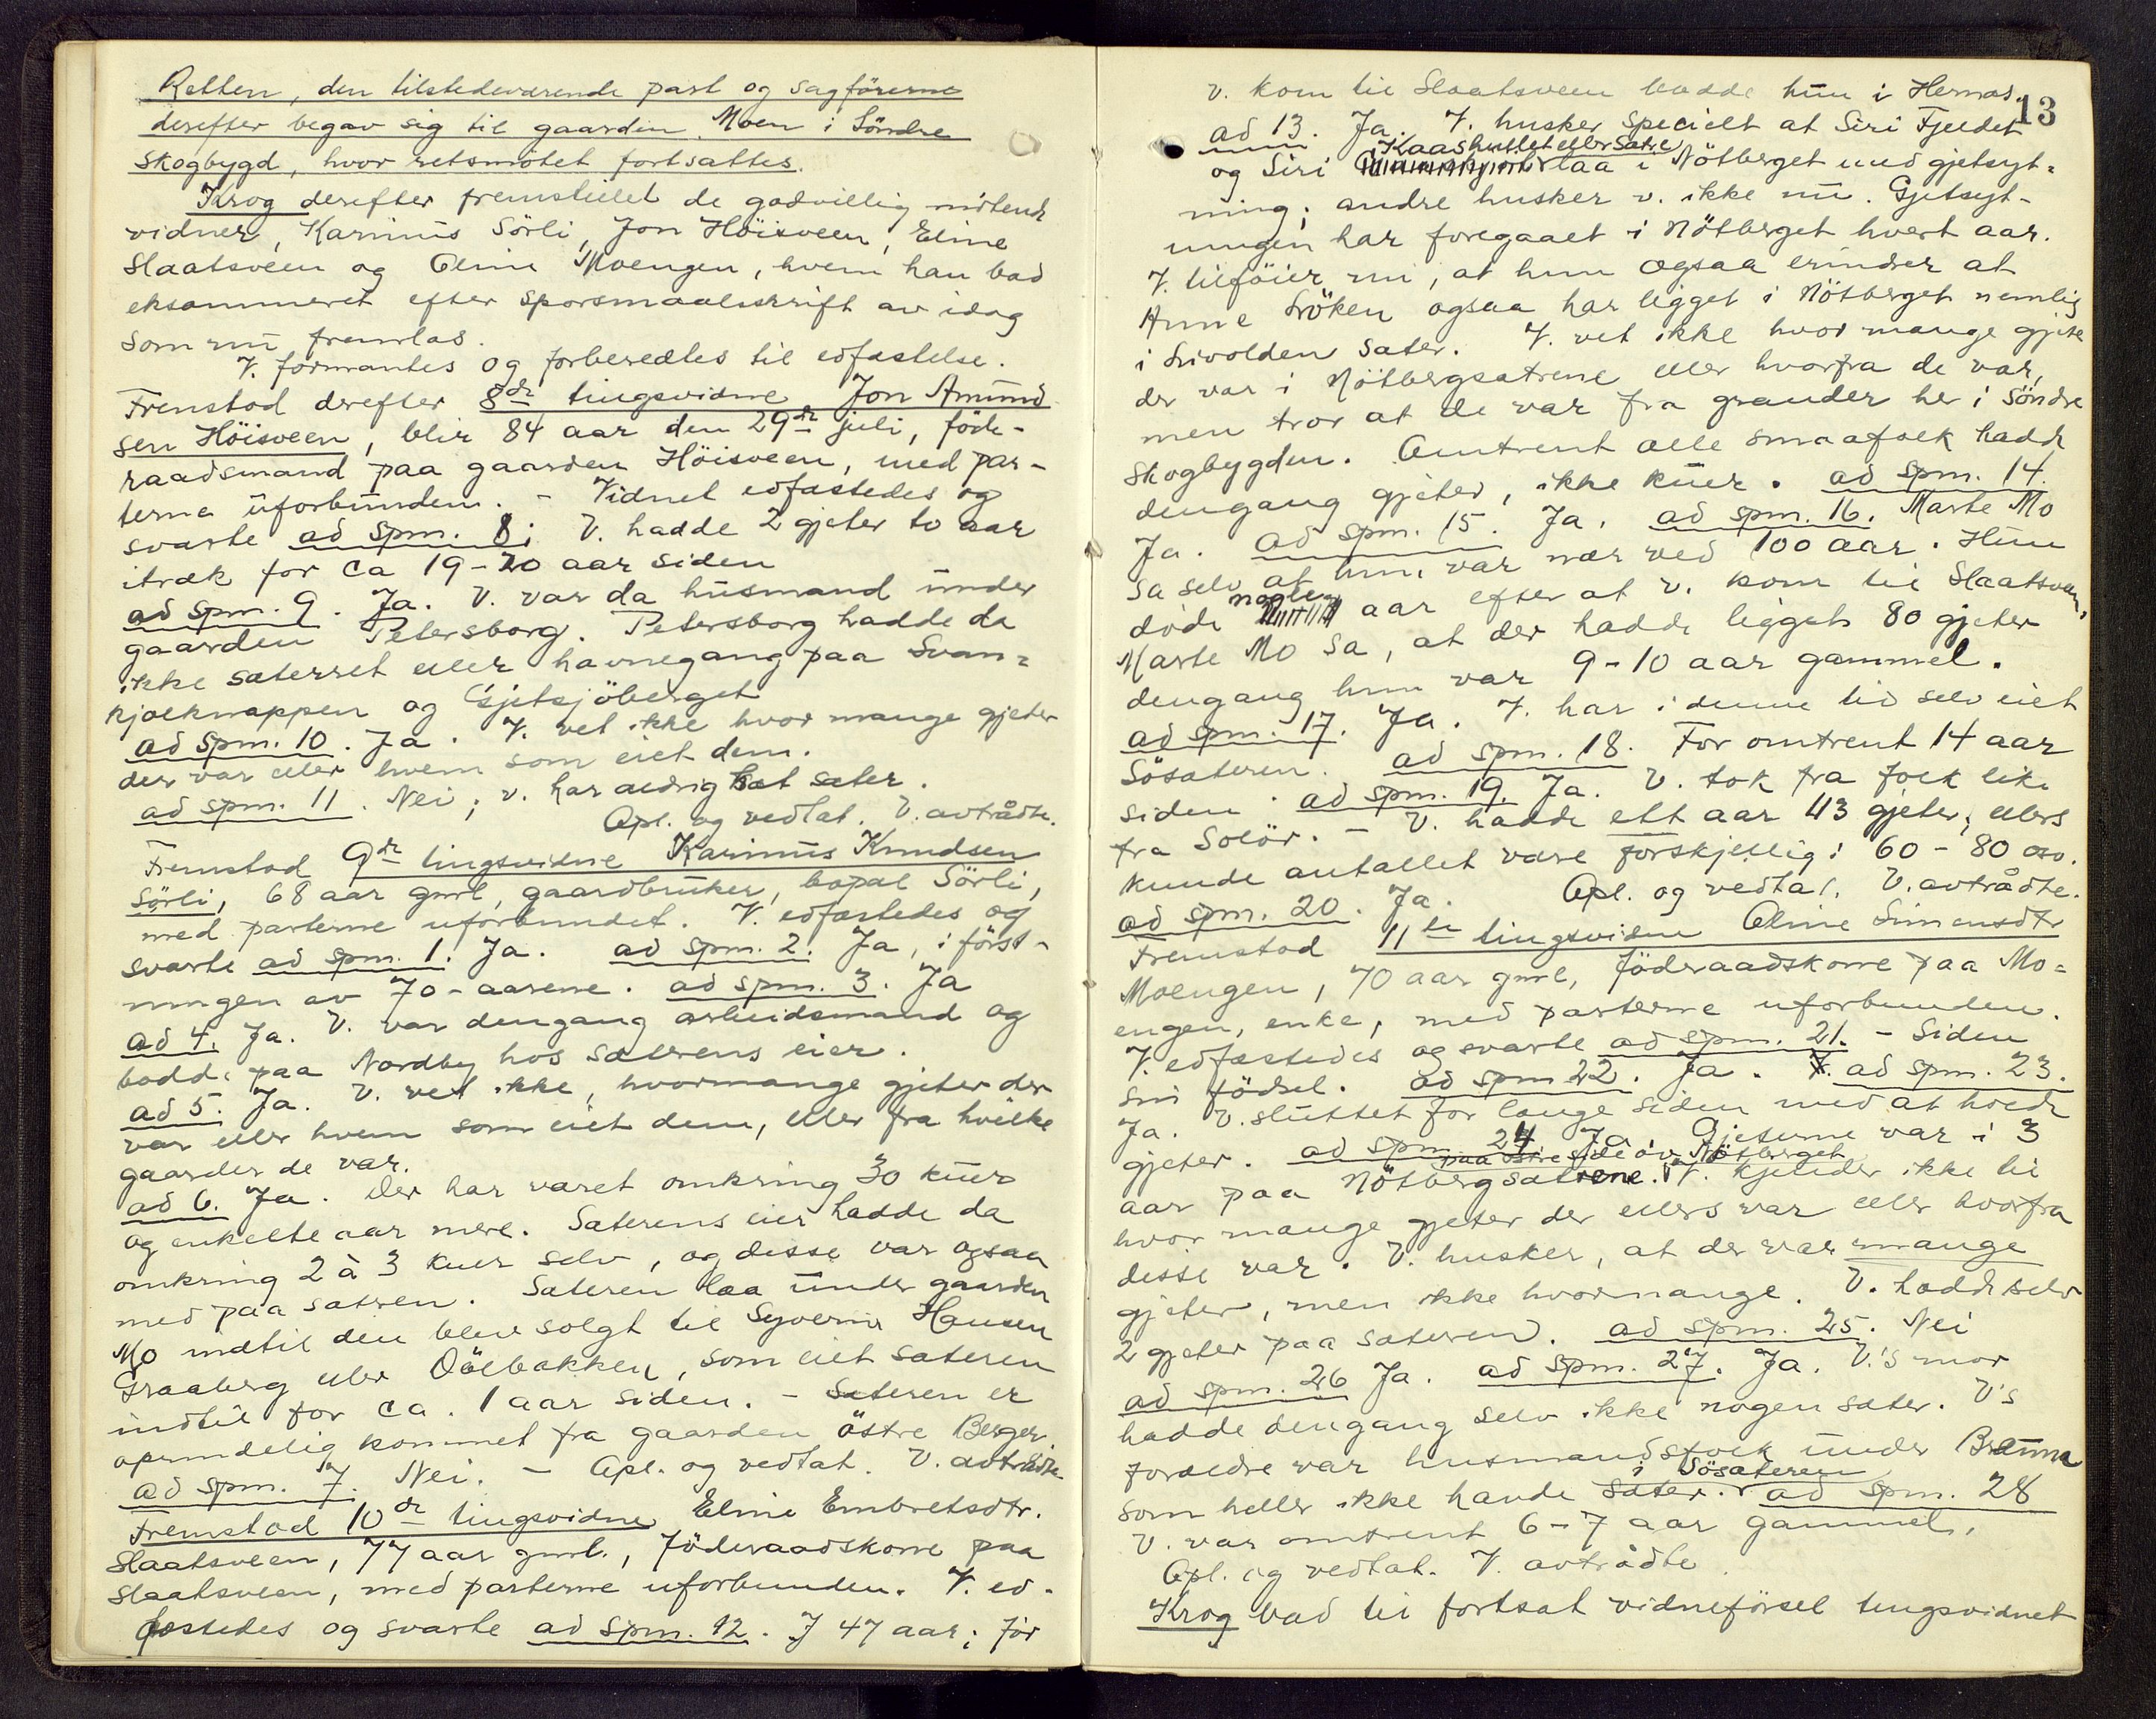 Retten, den tilstedeværende part og sagførerne
derefter begav sig til gaarden Moen i Søndre
Skogbygd, hvor retsmøtet fortsattes.
Krog derefter fremstillet de godvillig møtende
vidner, Karinus Sörli, Jon Höisveen, Eline
Slaatsveen og Oline Moengen, hvem han bad
eksammeret efter spørsmaalsskrift av idag
som nu fremlas.
V. formantes og forberedtes til edfæstelse.
Fremstod derefter 8de tingsvidne Jon Amund
sen Höisveen, blir 84 aar den 29de juli, föde-
raadsmand paa gaarden Höisveen, med par-
terne uforbunden. - Vidnet edfæstedes og
svarte ad spm. 8: V. hadde 2 gjeter to aar
itræk for ca 19-20 aar siden
ad spm. 9. Ja. V. var da husmand under
gaarden Petersborg. Petersborg hadde da
ikke sæterret eller havnegang paa Svan-
kjølknappen og Gjetsjöberget
ad spm. 10. Ja. V. vet ikke hvor mange gjeter
der var eller hvem som eiet dem.
ad spm. 11. Nei; v. har aldrig hat sæter.
Opl. og vedtat. V. avtrådte.
Fremstod 9de tingsvidne Karinus Knudsen
Sörli, 68 aar gml, gaardbruker, bopæl Sörli,
med parterne uforbundet. V. edfæstedes og
svarte ad spm. 1. Ja. ad spm. 2. Ja, i först-
ningen av 70-aarene. ad spm. 3. Ja
ad 4. Ja. V. var dengang arbeidsmand og
bodde paa Nordby hos sæterens eier.
ad 5. Ja. V. vet ikke, hvormange gjeter der
var eller hvem som eiet dem, eller fra hvilke
gaarder de var.
ad 6. Ja. Der har været omkring 30 kuer
og enkelte aar mere. Sæterens eier hadde da
omkring 2 à 3 kuer selv, og disse var ogsaa
med paa sætren. Sæteren laa under gaarden
Mo indtil den blev solgt til Syverin Hansen
Graaberg eller Oölbakken, som eiet sæteren
indtil for ca. 1 aar siden. - Sæteren er
oprindelig kommet fra gaarden östre Berger.
ad spm. 7. Nei. - Opl. og vedtat. V. avtrådte.
Fremstod 10de tingsvidne Eline Embretsdtr.
Slaatsveen, 77 aar gml., föderaadskone paa
Slaatsveen, med parterne uforbunden. V. ed-
fæstedes og svarte ad spm. 12. I 47 aar; för
13
v. kom til Slaatsveen bodde hun i Hernæs.
ad 13. Ja. V. husker specielt at Siri Fjeldet
i Kaashullet eller Sætre
og Siri laa i Nötberget med gjetsyt-
ning; andre husker v. ikke nu. Gjetsyt-
ningen har foregaaet i Nötberget hvert aar.
V. tilföier nu, at hun ogsaa erindrer at
Anne Sröken ogsaa har ligget i Nötberget nemlig
i Sivolden sæter. V. vet ikke hvor mange gjeter
der var i Nötbergsætrene eller hvorfra de var,
men tror at de var fra grander her i Söndre
Skogbygden. Omtrent alle smaafolk hadde
dengang gjeter, ikke kuer. ad spm. 14.
Ja. ad spm. 15. Ja. ad spm. 16. Marte Mo
sa selv at hun var nær ved 100 aar. Hun
nogle
døde aar efter at v. kom til Slaatsveen.
Marte Mo sa, at der hadde ligget 80 gjeter
dengang hun var 9-10 aar gammel.
ad spm. 17. Ja. V. har i denne tid selv eiet
Sösæteren. ad spm. 18. For omtrent 14 aar
siden. ad spm. 19. Ja. V. tok fra folk like
fra Solör. - V. hadde ett aar 43 gjeter; ellers
kunde antallet være forskjellig: 60-80 osv.
ad spm. 20. Ja. Opl. og vedtat. V. avtrådte.
Fremstod 11te tingsvidne Oline Simensdtr
Moengen, 70 aar gml, föderaadskone paa Mo-
engen, enke, med parterne uforbunden.
V. edfæstedes og svarte ad spm. 21. - Siden
sin födsel. ad spm 22. Ja. V. ad spm. 23.
Ja. V. sluttet for lange siden med at holde
gjeter. ad spm. 24. Ja. Gjeterne var i 3
paa østre side av Nötberget
aar paa Nötbergsætrene. V. kjender ikke til
hvor mange gjeter der ellers var eller hvorfra
disse var. V. husker, at der var mange
gjeter, men ikke hvormange. V. hadde selv
2 gjeter paa sæteren. ad spm. 25. Nei
ad spm. 26 Ja. ad spm. 27. Ja. V.'s mor
hadde dengang selv ikke nogen sæter. V's
forældre var husmandsfolk under Brænna
i Sösæteren
som heller ikke havde sæter. ad spm. 28
V. var omtrent 6-7 aar gammel.
Opl. og vedtat. V. avtrådte.
Krog bad til fortsat vidneförsel tingsvidnet